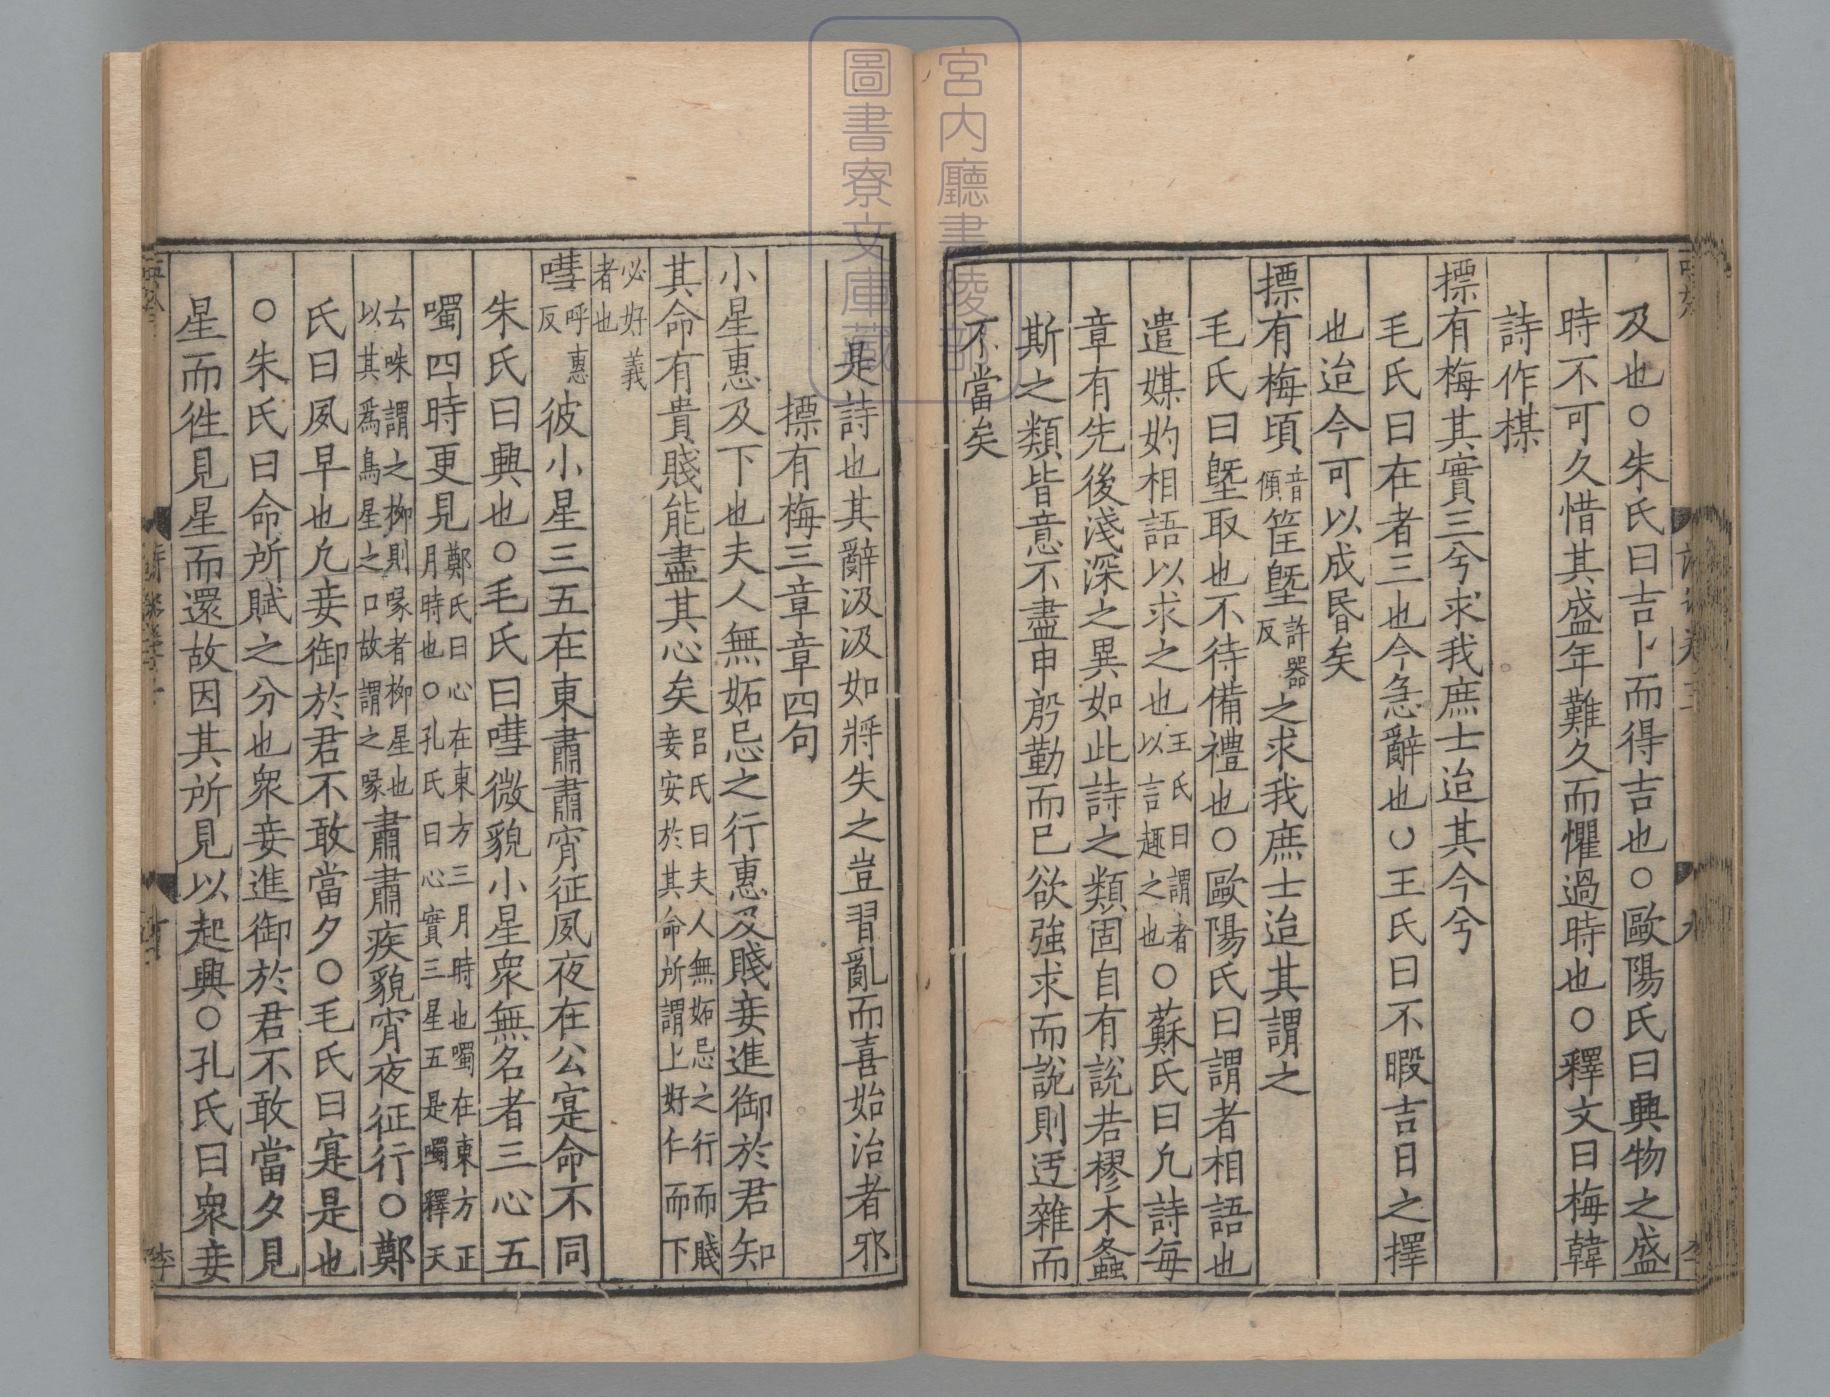 及也○朱氏曰吉卜而得吉也○歐陽氏曰興物之盛
時不可久惜其盛年難久而懼過時也○釋文曰梅韓
詩作楳
摽有梅其實三兮求我庶士迨其今兮
毛氏曰在者三也今急辭也○王氏曰不暇吉日之擇
也迨今可以成昬矣
摽有梅頃音傾筐塈許器反之求我庶士迨其謂之
毛氏曰塈取也不待備禮也○歐陽氏曰謂者相語也
遣媒妁相語以求之也王氏曰謂者以言趣之也○蘇氏曰凢詩每
章有先後淺深之異如此詩之類固自有說若樛木螽
斯之類皆意不盡申殷勤而已欲強求而說則迃雜而
不當矣
是詩也其辭汲汲如將失之豈習亂而喜始治者邪
摽有梅三章章四句
小星惠及下也夫人無妬忌之行惠及賤妾進御於君知
其命有貴賤能盡其心矣呂氏曰夫人無妬忌之行而賤妾安於其命所謂上好仁而下
必好義者也
嘒呼惠反彼小星三五在東肅肅宵征夙夜在公寔命不同
朱氏曰興也○毛氏曰嘒微貌小星衆無名者三心五
噣四時更見鄭氏曰心在東方三月時也噣在東方正月時也○孔氏曰心實三星五是噣釋天
云咮謂之柳則喙者柳星也以其爲鳥星之口故謂之喙肅肅疾貌宵夜征行○鄭
氏曰夙早也凢妾御於君不敢當夕○毛氏曰寔是也
○朱氏曰命所賦之分也衆妾進御於君不敢當夕見
星而徃見星而還故因其所見以起興○孔氏曰衆妾
李
宮内廳書陵部
圖書寮文庫藏